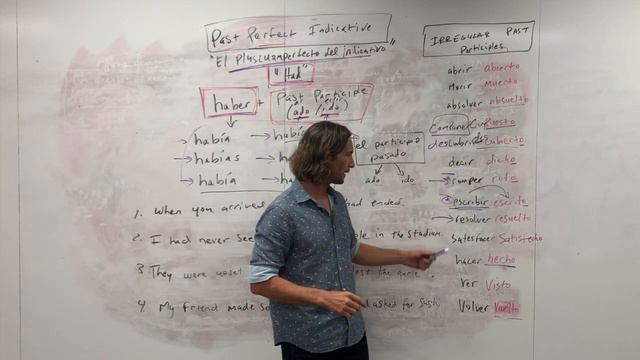 Past Perfect Indicative
"El Pluscuamperfecto del indicativo"
"Had"
haber + Past Participle
(ado/ido)
había
habías
había
el participio
pasado
ado ido
1. When you arrived had ended.
2. I had never in the Stadium.
3. They were upset the game.
4. My friend made asked for Sushi
IRREGULAR PAST
Participles
abrir abierto
Morir Muerto
absolver absuelto
decir dicho
romper roto
escribir escrito
resolver resuelto
Satisfacer Satisfecho
hacer hecho
Ver Visto
Volver Vuelto